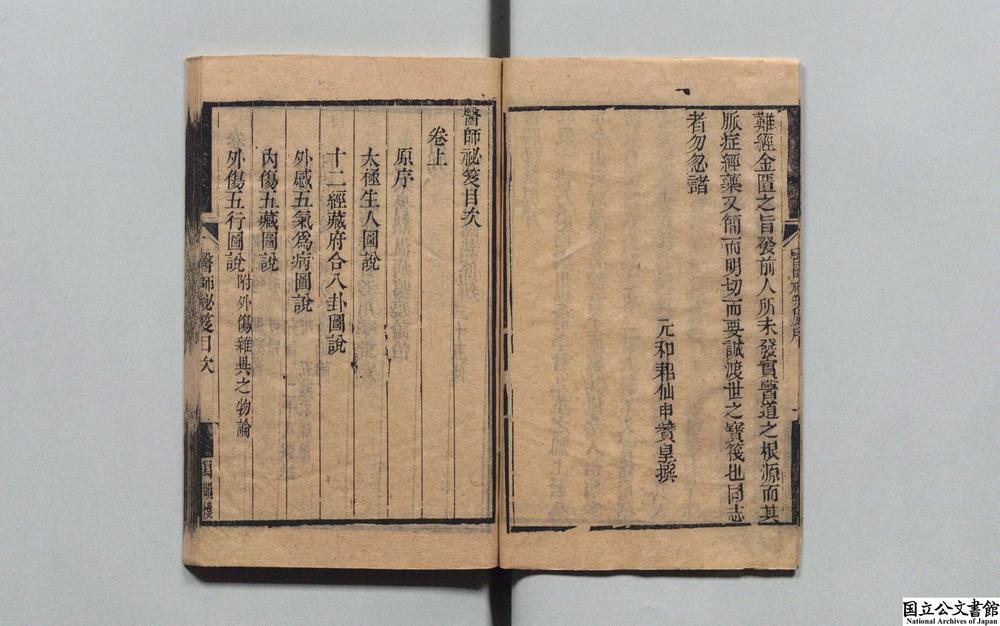 難經金匱之旨發前人所未發實醫道之根源而其
脈症經藥又簡而明切而要誠渡世之寶筏也同志
者勿忽諸
元和耜仙申贊皇撰
醫師祕笈原序
醫師祕笈目次
卷上
原序
太極生人圖說
十二經藏府合八卦圖說
外感五氣爲病圖說
內傷五藏圖說
外傷五行圖說 附外傷雜具之物論
醫師祕笈目次
国立公文書館
National Archives of Japan